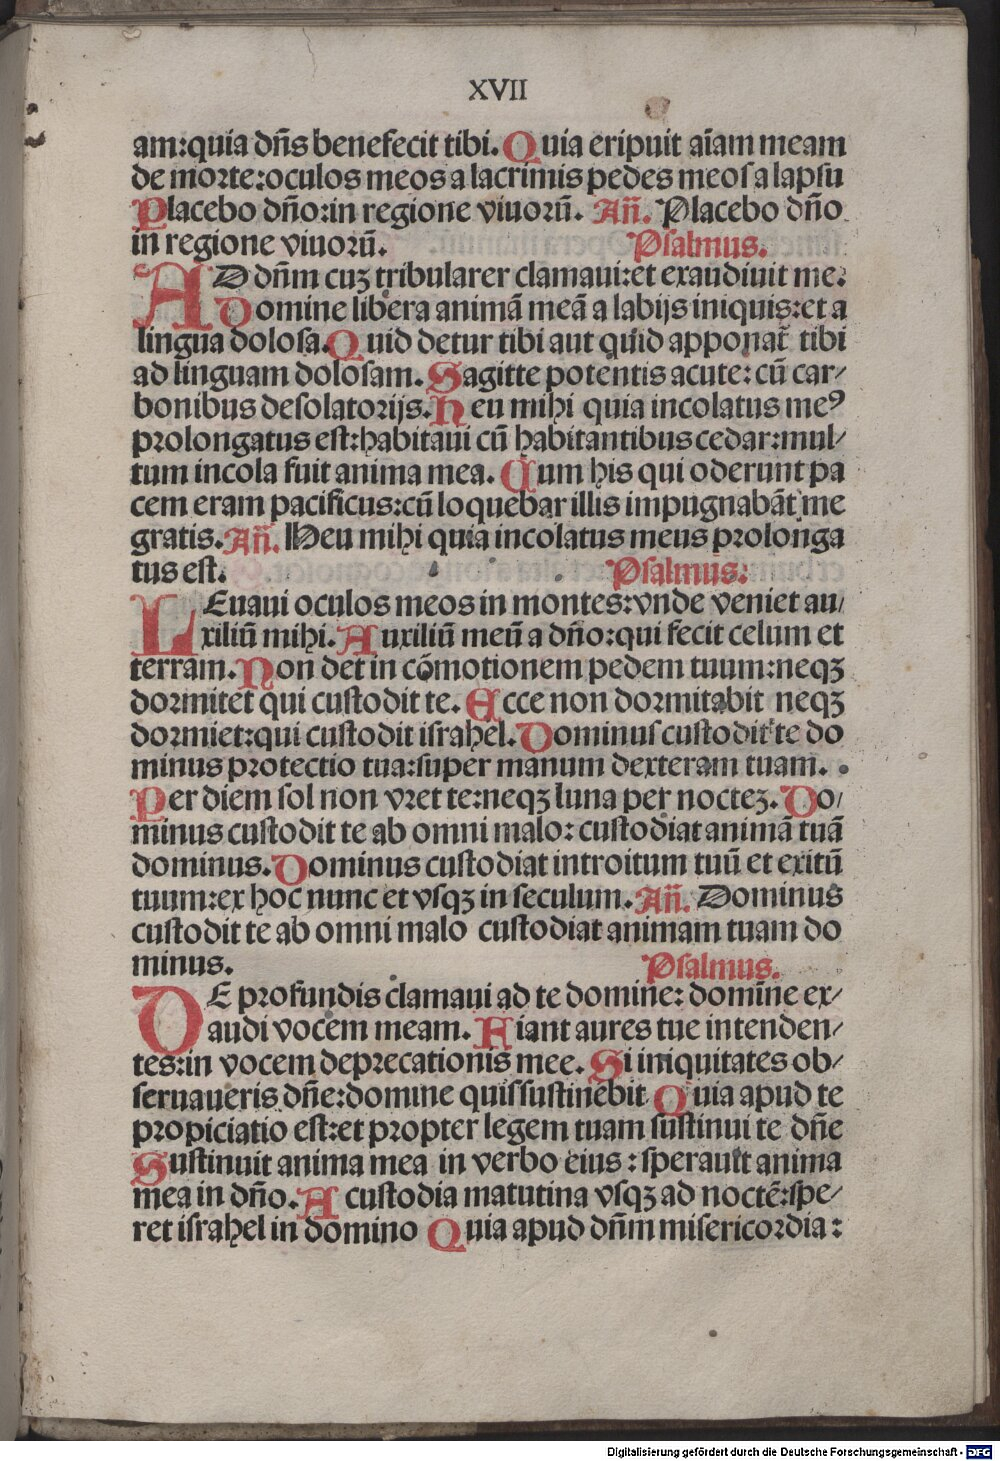 XVII
am:quia dn̄s benefecit tibi. Quia eripuit aīam meam
de morte:oculos meos a lacrimis pedes meos a lapsu
Placebo dn̄o:in regione viuorū. Añ. Placebo dn̄o
in regione viuorū. Psalmus.
AD dn̄m cuȝ tribularer clamaui:et exaudiuit me:
Domine libera animā meā a labijs iniquis:et a
lingua dolosa. Quid detur tibi aut quid apponat̄ tibi
ad linguam dolosam. Sagitte potentis acute: cū car/
bonibus desolatorijs. Heu mihi quia incolatus meꝰ
prolongatus est:habitaui cū habitantibus cedar:mul/
tum incola fuit anima mea. Cum his qui oderunt pa
cem eram pacificus:cū loquebar illis impugnabāt me
gratis. Añ. Heu mihi quia incolatus meus prolonga
tus est. Psalmus.
LEuaui oculos meos in montes:vnde veniet au/
xiliū mihi. Auxiliū meū a dn̄o:qui fecit celum et
terram. Non det in cōmotionem pedem tuum:neqȝ
dormitet qui custodit te. Ecce non dormitabit neqȝ
dormiet:qui custodit israhel. Dominus custodit te do
minus protectio tua:super manum dexteram tuam.
Per diem sol non vret te:neqȝ luna per nocteȝ. Do/
minus custodit te ab omni malo: custodiat animā tuā
dominus. Dominus custodiat introitum tuū et exitū
tuum:ex hoc nunc et vsqȝ in seculum. Añ. Dominus
custodit te ab omni malo custodiat animam tuam do
minus. Psalmus.
DE profundis clamaui ad te domine: domine ex/
audi vocem meam. Fiant aures tue intenden/
tes:in vocem deprecationis mee. Si iniquitates ob/
seruaueris dn̄e:domine quis sustinebit Quia apud te
propiciatio est:et propter legem tuam sustinui te dn̄e
Sustinuit anima mea in verbo eius : sperauit anima
mea in dn̄o. A custodia matutina vsqȝ ad noctē:spe/
ret israhel in domino Quia apud dn̄m misericordia :
Digitalisierung gefördert durch die Deutsche Forschungsgemeinschaft - DFG